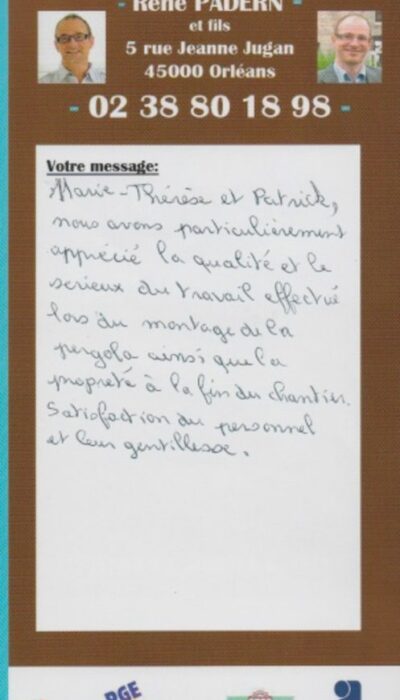 - René PADERN -
et fils
5 rue Jeanne Jugan
45000 Orléans
- 02 38 80 18 98 -
Votre message:
Marie-Thérèse et Patrick,
nous avons particulièrement
apprécié la qualité et le
serieux du travail effectué
lors du montage de la
pergola ainsi que la
propreté à la fin du chantier.
Satisfaction du personnel
et leur gentillesse.
RGE